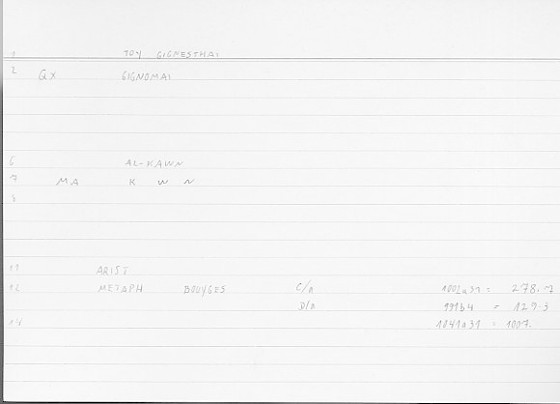 1 TOY GIGNESTHAI
2 QX GIGNOMAI
6 AL-KAWN
7 MA K W N
8
11 ARIST
12 METAPH BOUYGES C/A 1002a31 = 278.7
D/A 999b4 = 129.3
14 1041a31 = 1007.